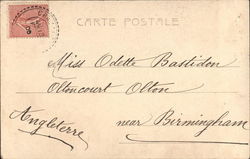 CARTE POSTALE
Miss Odette Bastidon
Oltoncourt Olton
near Birmingham
Angleterre